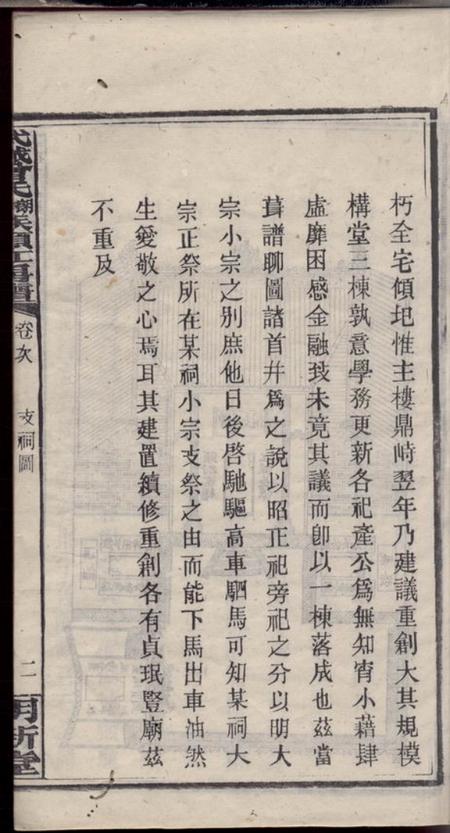 朽全宅傾圯惟主樓鼎峙翌年乃建議重創大其規模
構堂三棟孰意學務更新各祀產公爲無知宵小藉肆
虛靡困感金融玻未竟其議而卽以一棟落成也茲當
葺譜聊圖諸首幷爲之說以昭正祀旁祀之分以明大
宗小宗之別庶他日後啓馳驅高車駟馬可知某祠大
宗正祭所在某祠小宗支祭之由而能下馬出車油然
生愛敬之心焉耳其建置續修重創各有貞珉豎廟茲
不重及
武城曾氏
卷次 支祠圖
二
明新堂